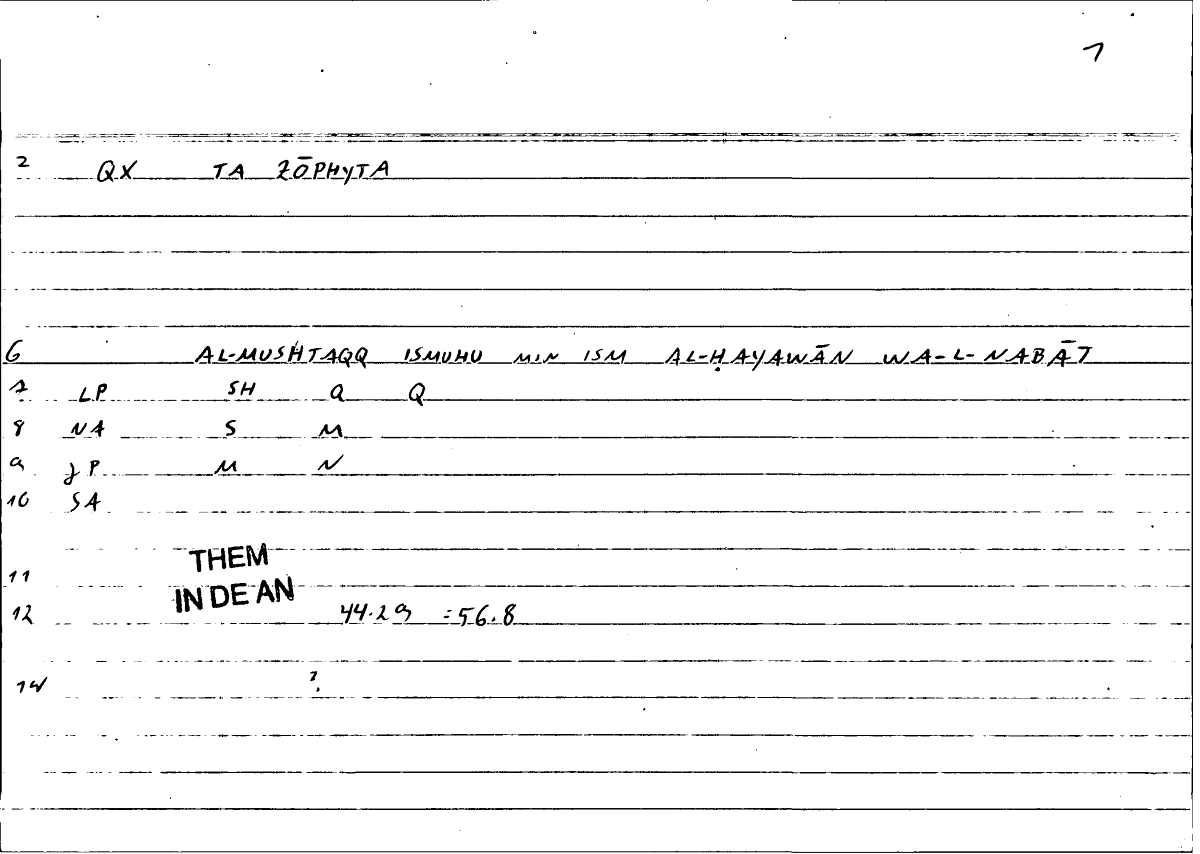 1
2 QX TA ZŌPHYTA
6 AL-MUSHTAQQ ISMUHU MIN ISM AL-ḤAYAWĀN WA-L-NABĀT
7 LP SH Q Q
8 NA S M
9 JP M N
10 SA
THEM
11
IN DE AN
12 44.29 =56.8
14 ?